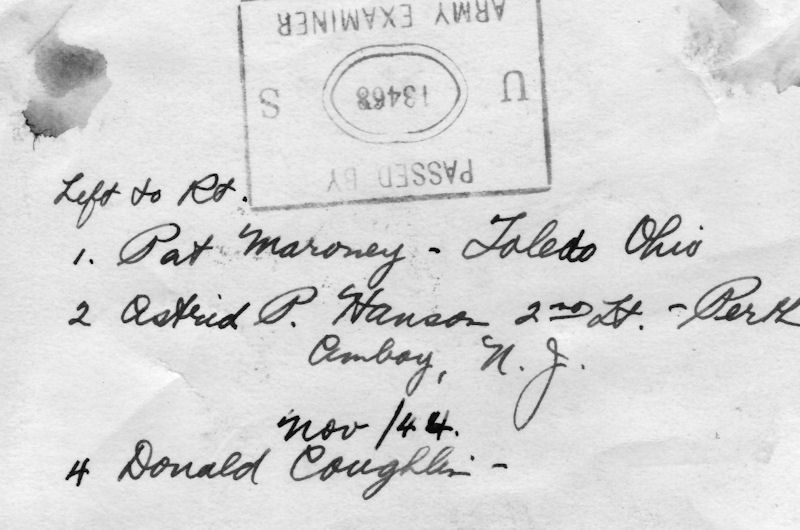 ARMY EXAMINER
U 13468 S
PASSED BY
Left to Rt.
1. Pat Maroney - Toledo Ohio
2 Astrid P. Hanson 2nd Lt. - Perth
Amboy, N. J.
Nov /44.
4 Donald Coughlin -